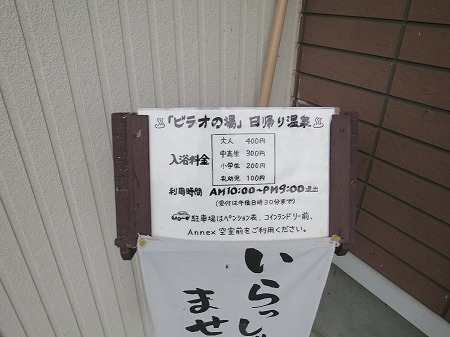 ♨「ビラオの湯」日帰り温泉♨
入浴料金
大人 400円
中高生 300円
小学生 200円
乳幼児 100円
利用時間 AM10:00〜PM9:00退出
(受付は午後8時30分まで)
駐車場はペンション表、コインランドリー前、
Annex 空室前をご利用ください。
いらっし
ませ